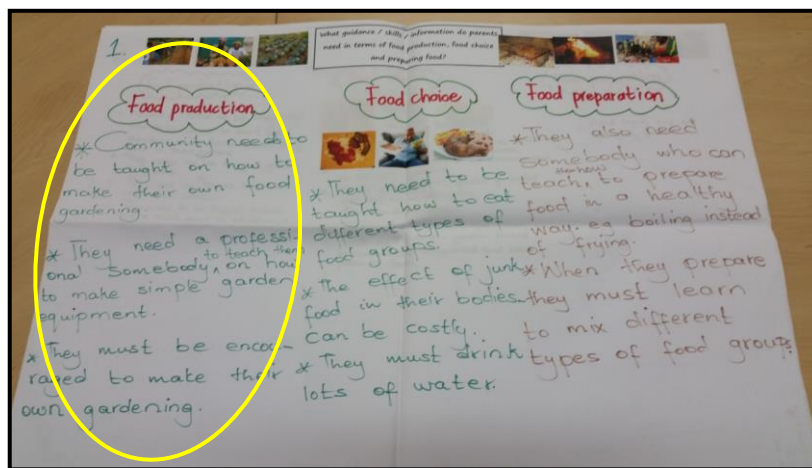 1.
What guidance / skills / information do parents
need in terms of food production, food choice
and preparing food?
Food production
* Community needs to
be taught on how to
make their own food
gardening.
* They need a professi-
onal somebody to teach them on how
to make simple garden
equipment.
* They must be encou-
raged to make their
own gardening.
Food choice
* They need to be
taught how to eat
different types of
food groups.
* The effect of junk
food in their bodies
can be costly.
* They must drink
lots of water.
Food preparation
* They also need
somebody who can
teach them how to prepare
food in a healthy
way. eg boiling instead
of frying.
* When they prepare
they must learn
to mix different
types of food groups.